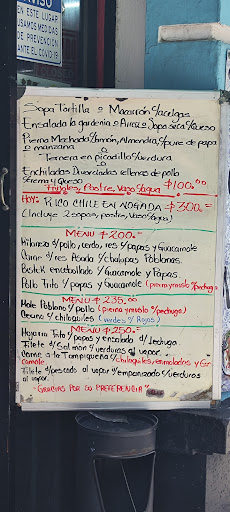 AVISO
EN ESTE LUGAR
USAMOS MEDIDAS
DE PREVENCIÓN
ANTE EL COVID-19
Sopa Tortilla o Macarrón s/acelgas
Ensalada la gardenia o Arroz o Sopa seca c/Queso
Pierna Mechada c/Jamón, Almendra, c/pure de papa
o manzana
o
Ternera en picadillo c/verdura
o
Enchiladas Divorciadas rellenas de pollo
c/crema y Queso
Frijoles, Postre, Vaso c/agua $100.00
Hoy: RICO CHILE EN NOGADA $300.00
(Incluye 2 sopas, postre, Vaso c/agua)
MENU $200.00
Milanesa c/pollo, cerdo, res c/papas y Guacamole
Carne c/res Asada c/Chalupas Poblanas.
Bistek encebollado c/Guacamole y Papas
Pollo Frito c/papas y Guacamole (pierna y muslo o pechuga)
MENU $235.00
Mole Poblano c/pollo (pierna y muslo o pechuga)
Cecina c/chilaquiles (verdes o Rojos)
MENU $250.00
Mojarra Frita c/papas y ensalada c/Lechuga.
Filete c/Salmón c/verduras al vapor.
Carne a la Tampiqueña c/Chilaquiles, enmoladas y Gua-
camole.
Filete c/pescado al vapor o empanizado c/verduras
al vapor.
-GRACIAS POR SU PREFERENCIA-